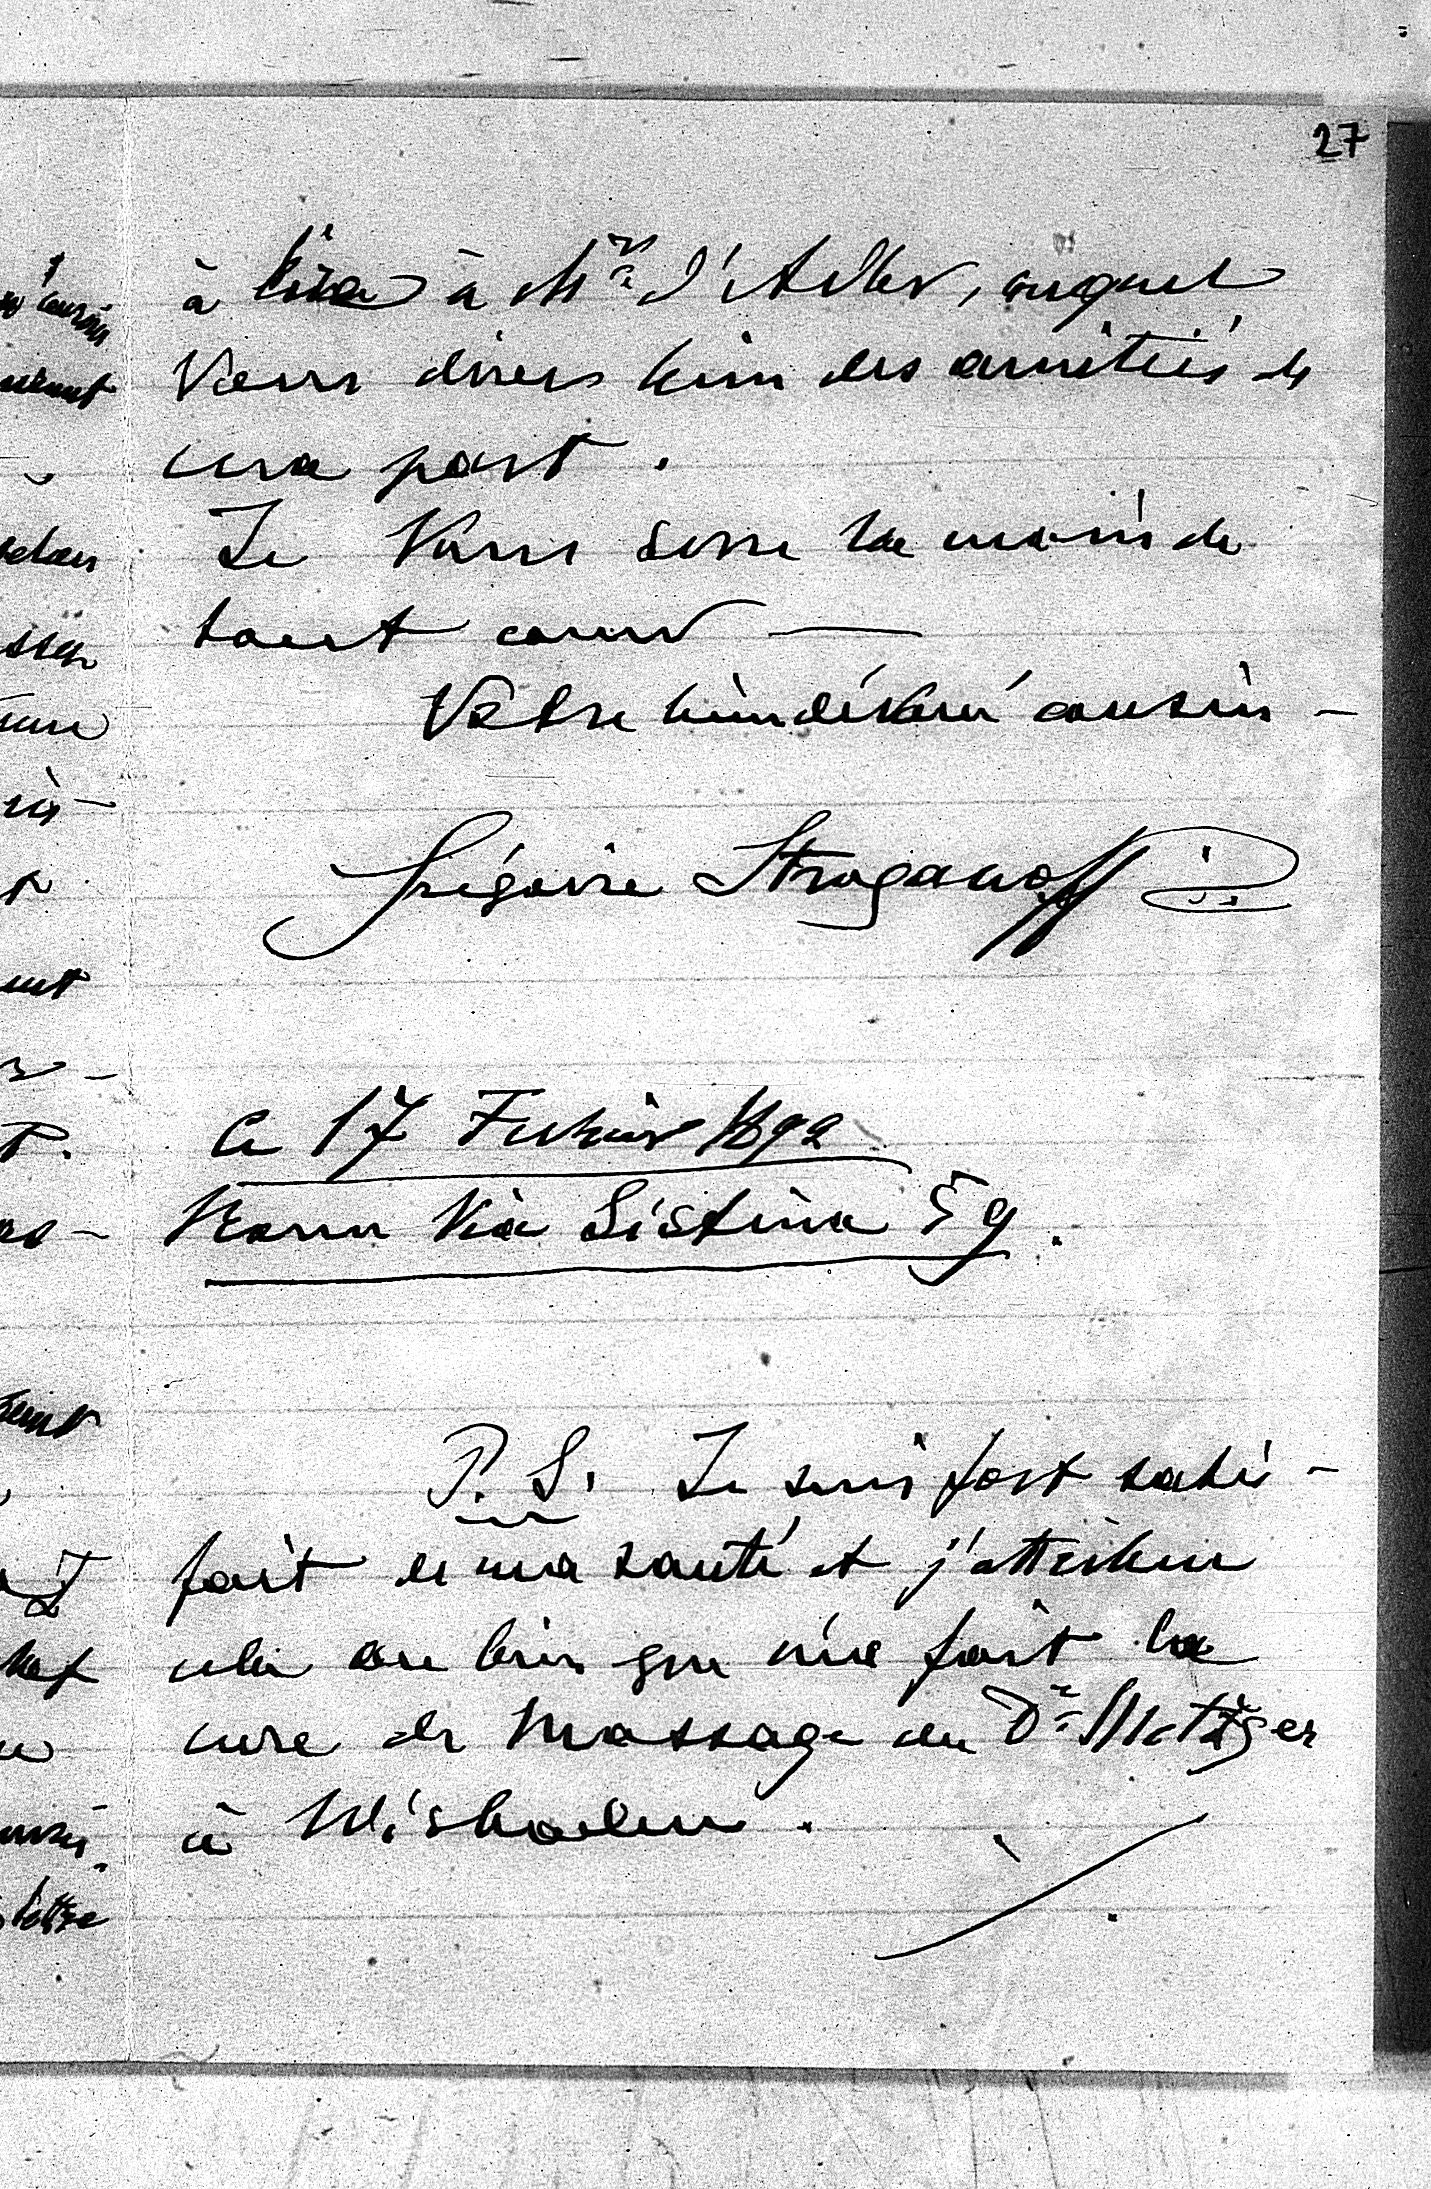 27
à lire à Mr d'Adler, auquel
Vous direz bien des amitiés de
ma part.
Je Vous serre la main de
tout coeur —
Votre bien dévoué cousin —
Grégoire Stroganoff
Ce 17 Février 1892
Rome Via Sistina 59.
P. S. Je suis fort satis-
fait de ma santé et j'attribue
cela au bien que me fait la
cure de Massage du Dr Metzger
à Wisbaden.